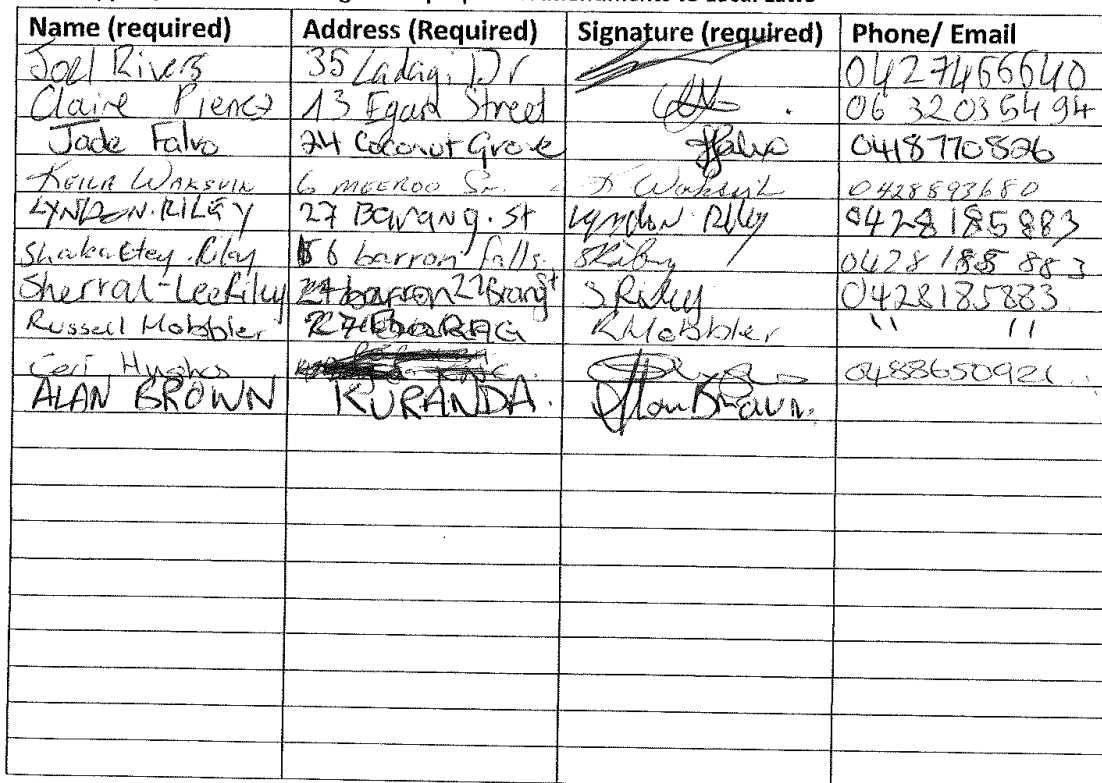 Amendments to Local Laws
Name (required) Address (Required) Signature (required) Phone/ Email
Joel Rivers 35 Ladagi Dr 0427466640
Claire Pierce 13 Street 06 32035494
Jade Falvo 24 Coconut Grove JFalvo 0418770826
6 MEEROO St. 0428893680
LYNDON. RILEY 27 Barang. St Lyndon Riley 0428185883
Riley 6 barron falls. 0428 185 883
Sherral-Lee Riley 27 Barang St S Riley 0428185883
Russell Mobbler 27 R Mobbler " "
Ceri Hughes 0488650921
ALAN BROWN KURANDA. Alan Brown.